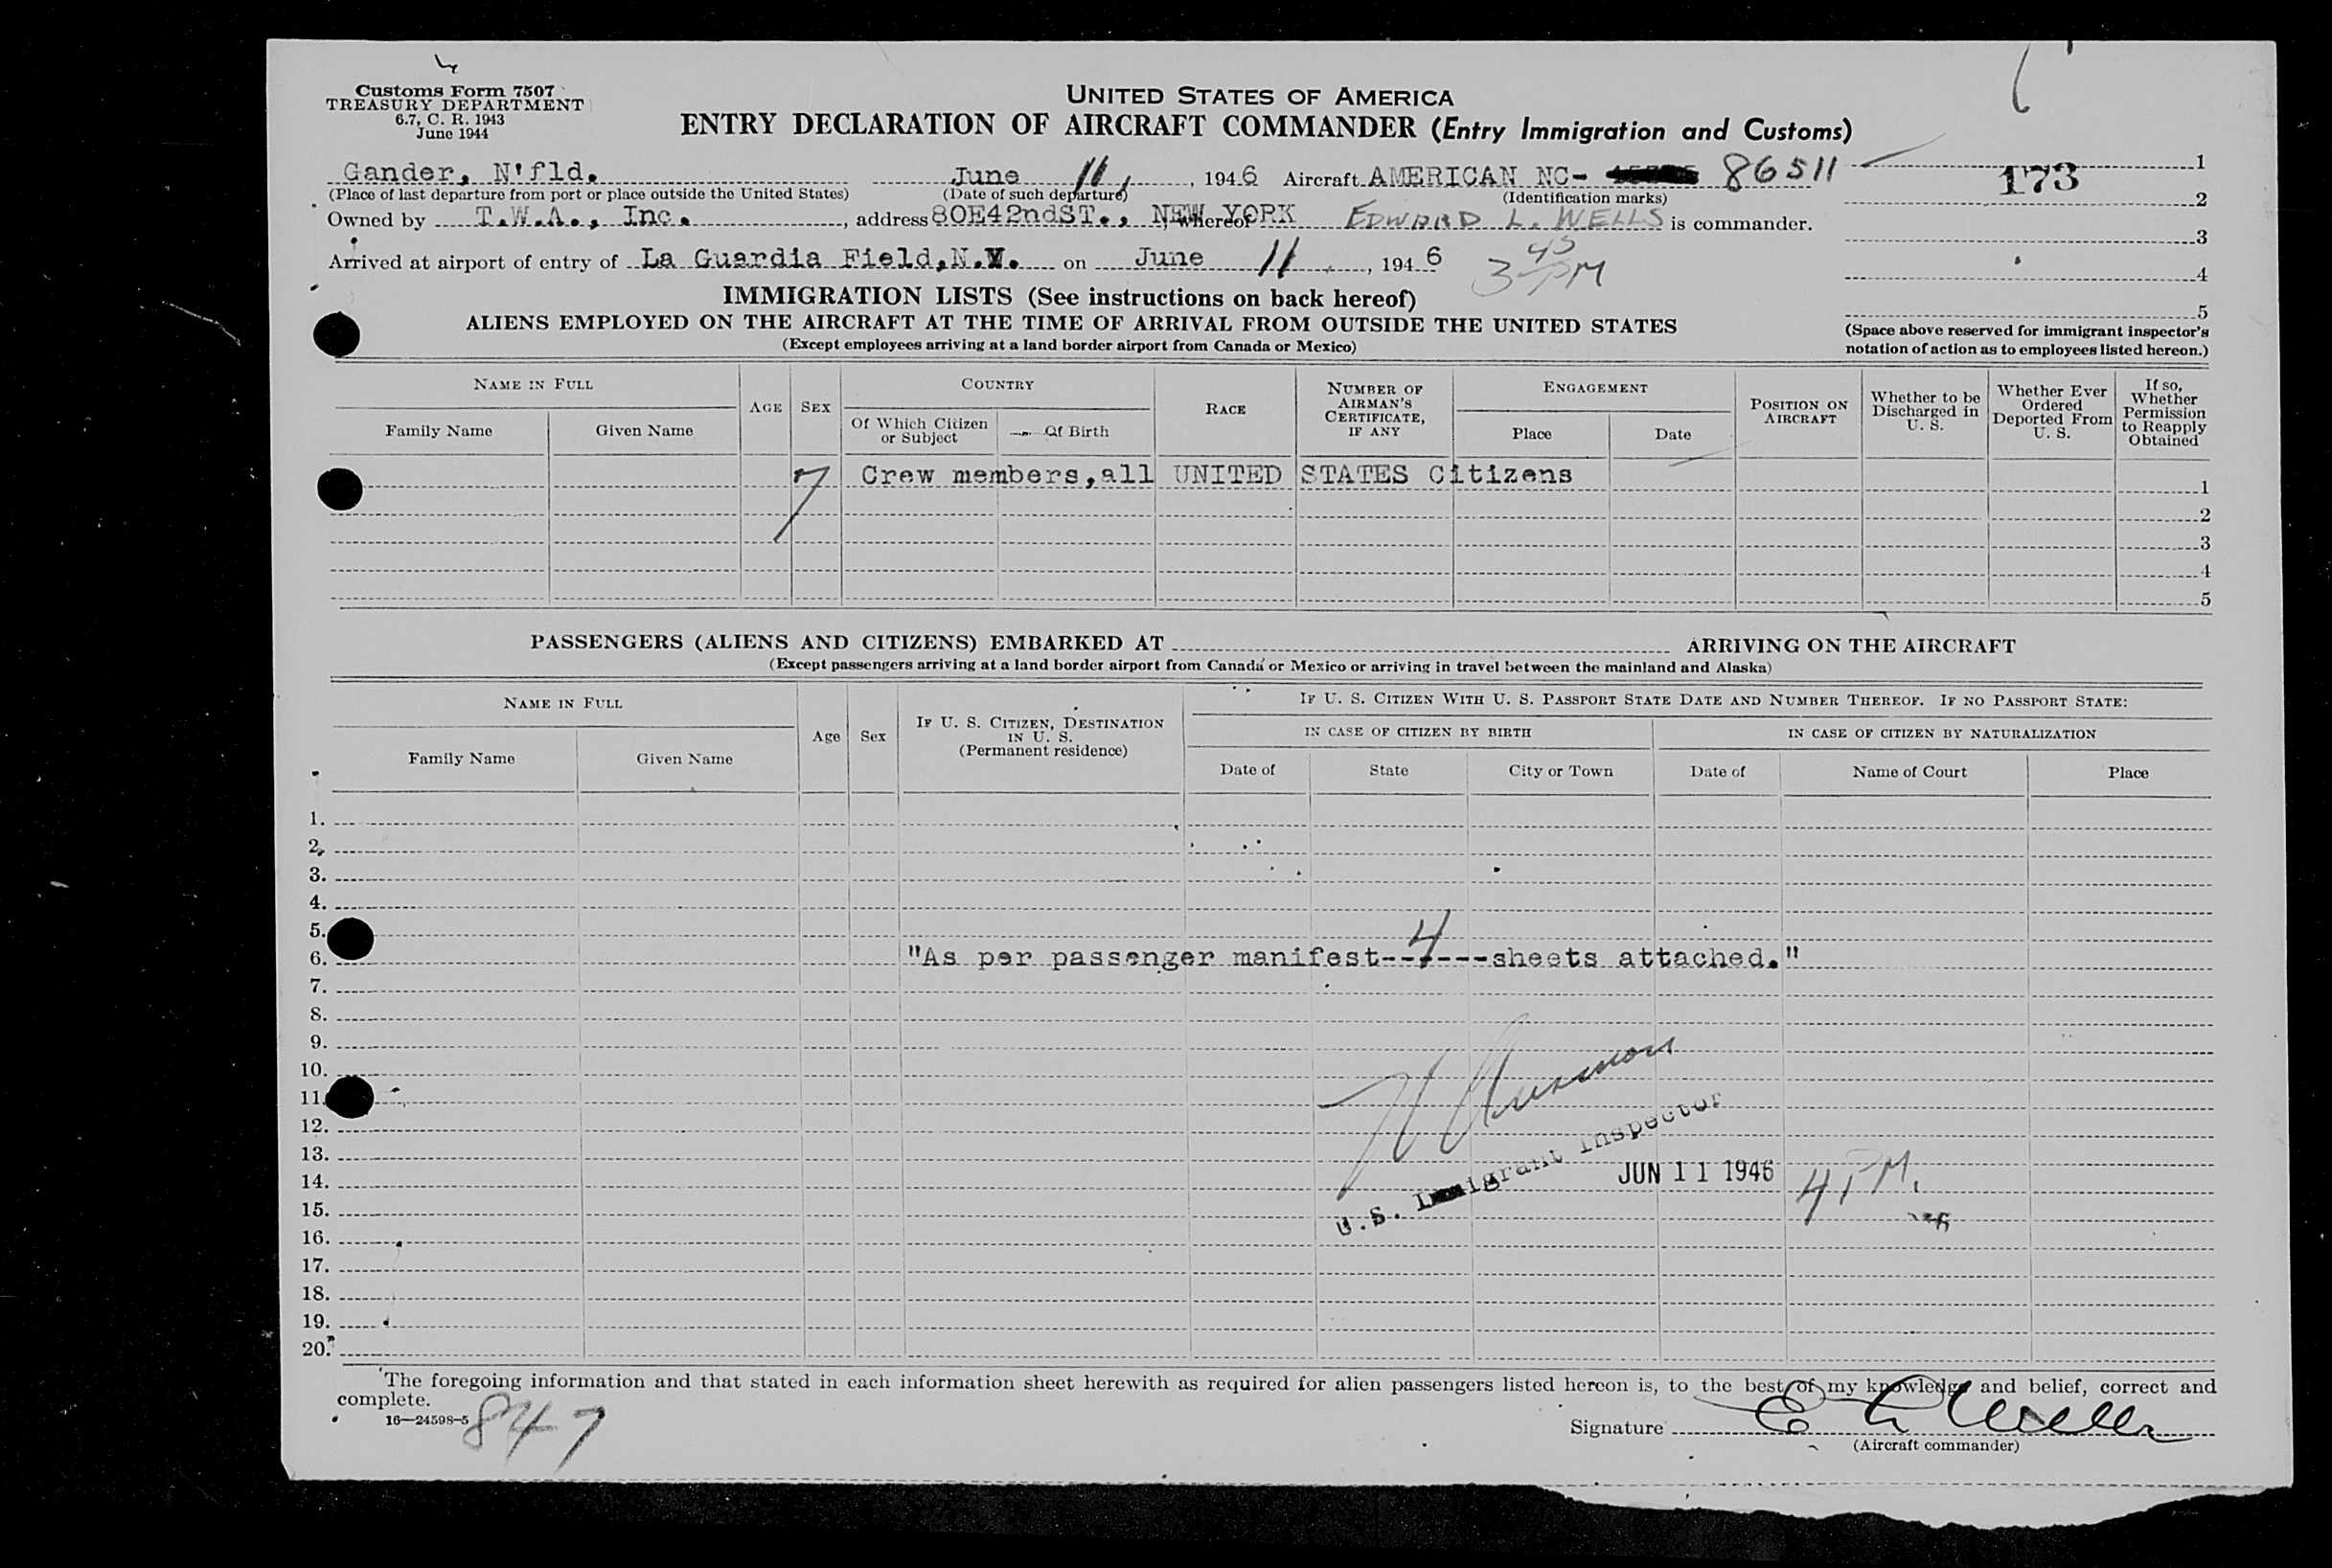 Customs Form 7507
TREASURY DEPARTMENT
6.7, C. R. 1943
June 1944
UNITED STATES OF AMERICA
ENTRY DECLARATION OF AIRCRAFT COMMANDER (Entry Immigration and Customs)
Gander, N'fld. June 11, 1946 Aircraft AMERICAN NC- 86511 1
(Place of last departure from port or place outside the United States) (Date of such departure) (Identification marks) 173 2
Owned by T.W.A., Inc., address 80E42ndST., NEW YORK, whereof EDWARD L. WELLS is commander.
3
Arrived at airport of entry of La Guardia Field, N.Y. on June 11, 1946 3 45 PM 4
IMMIGRATION LISTS (See instructions on back hereof)
5
ALIENS EMPLOYED ON THE AIRCRAFT AT THE TIME OF ARRIVAL FROM OUTSIDE THE UNITED STATES
(Except employees arriving at a land border airport from Canada or Mexico)
(Space above reserved for immigrant inspector's
notation of action as to employees listed hereon.)
NAME IN FULL
Family Name Given Name
AGE SEX
COUNTRY
Of Which Citizen or Subject Of Birth
RACE
NUMBER OF AIRMAN'S CERTIFICATE, IF ANY
ENGAGEMENT
Place Date
POSITION ON AIRCRAFT
Whether to be Discharged in U. S.
Whether Ever Ordered Deported From U. S.
If so, Whether Permission to Reapply Obtained
7 Crew members, all UNITED STATES Citizens 1
2
3
4
5
PASSENGERS (ALIENS AND CITIZENS) EMBARKED AT ARRIVING ON THE AIRCRAFT
(Except passengers arriving at a land border airport from Canada or Mexico or arriving in travel between the mainland and Alaska)
NAME IN FULL
Family Name Given Name
Age Sex
IF U. S. CITIZEN, DESTINATION IN U. S.
(Permanent residence)
IF U. S. CITIZEN WITH U. S. PASSPORT STATE DATE AND NUMBER THEREOF. IF NO PASSPORT STATE:
IN CASE OF CITIZEN BY BIRTH IN CASE OF CITIZEN BY NATURALIZATION
Date of State City or Town Date of Name of Court Place
1.
2.
3.
4.
5.
6. "As per passenger manifest--4---sheets attached."
7.
8.
9.
10.
11.
12.
13.
U.S. Immigrant Inspector
14. JUN 11 1946 4 PM.
15.
16.
17.
18.
19.
20.
The foregoing information and that stated in each information sheet herewith as required for alien passengers listed hereon is, to the best of my knowledge and belief, correct and
complete.
16—24598-5 847
Signature E L Wells
(Aircraft commander)